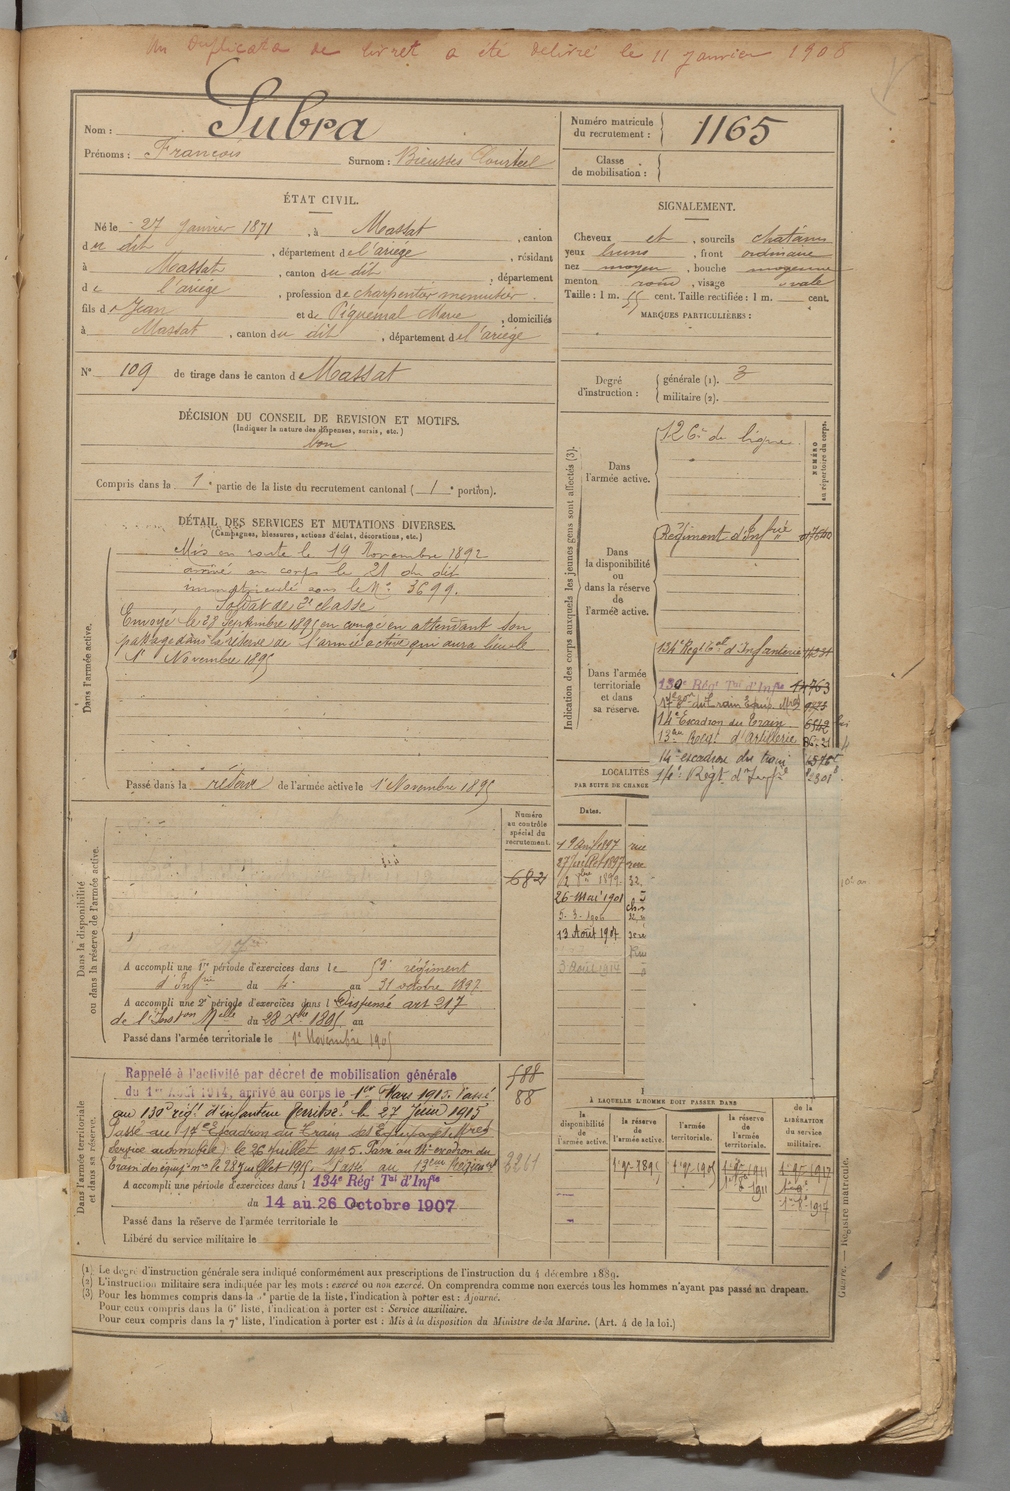 Un duplicata de livret a été délivré le 11 Janvier 1906
Nom : Subra
Prénoms : François Surnom :
Numéro matricule du recrutement : 1165
Classe de mobilisation :
ÉTAT CIVIL.
Né le 27 Janvier 1871, à Massat, canton
du dit, département de l'ariége, résidant
à Massat, canton du dit, département
de l'ariége, profession de charpentier menuisier.
fils de Jean et de Piquemal Marie, domiciliés
à Massat, canton du dit, département de l'ariége
N° 109 de tirage dans le canton de Massat
SIGNALEMENT.
Cheveux et, sourcils chatains
yeux bruns, front ordinaire
nez moyen, bouche moyenne
menton rond, visage ovale
Taille : 1 m. 55 cent. Taille rectifiée : 1 m. cent.
MARQUES PARTICULIÈRES :
Degré d'instruction :
générale (1). 3
militaire (2).
DÉCISION DU CONSEIL DE REVISION ET MOTIFS.
(Indiquer la nature des dispenses, sursis, etc.)
bon
Compris dans la 1e partie de la liste du recrutement cantonal (1e portion).
DÉTAIL DES SERVICES ET MUTATIONS DIVERSES.
(Campagnes, blessures, actions d'éclat, décorations, etc.)
Dans l'armée active.
Mis en route le 19 Novembre 1892
arrivé au corps le 21 du dit
immatriculé sous le N° 3699.
Soldat de 2e classe
Envoyé le 28 Septembre 1895 en congé en attendant son
passage dans la réserve de l'armée active qui aura lieu le
1er Novembre 1895
Passé dans la réserve de l'armée active le 1er Novembre 1895
Indication des corps auxquels les jeunes gens sont affectés (3).
NUMÉRO au répertoire du corps.
Dans l'armée active.
126e de ligne
Dans la disponibilité ou dans la réserve de l'armée active.
Régiment d'Inf
Dans l'armée territoriale et dans sa réserve.
134e Régt Tal d'Infanterie
130e Régt Tal d'Infie 14763
17e du Train Equip. Mres
14e Escadron du Train
13e Regt d'Artillerie
14e escadron du train
14e Régt d'Infie
LOCALITÉS
PAR SUITE DE CHANGE
Dates.
27 Juillet 1897
26 Mai 1901
5. 3. 1906
13 Août 1907
3 Août 1914
Dans la disponibilité ou dans la réserve de l'armée active.
Numéro au contrôle spécial du recrutement.
682
A accompli une 1re période d'exercices dans le 59e régiment
d'Infie du 4 au 31 octobre 1897
A accompli une 2e période d'exercices dans l Dispensé art 217
de l'Inston Melle du 28 Xbre 1895 au
Passé dans l'armée territoriale le 1er Novembre 1905
Dans l'armée territoriale et dans sa réserve.
588
88
3261
Rappelé à l'activité par décret de mobilisation générale
du 1er Août 1914, arrivé au corps le 1er Mars 1915. Passé
au 130e régt d'infanterie territle le 27 Juin 1915
Passé au 17e Escadron du Train des Equipages Mres
Service automobile le 26 juillet 1915. Passé au 14e escadron du
Train des équip. mres le 28 juillet 1915. Passé au 13eme Régiment
A accompli une période d'exercices dans l 134e Régt Tal d'Infie
du 14 au 26 Octobre 1907
Passé dans la réserve de l'armée territoriale le
Libéré du service militaire le
À LAQUELLE L'HOMME DOIT PASSER DANS
la disponibilité de l'armée active.
la réserve de l'armée active.
l'armée territoriale.
la réserve de l'armée territoriale.
de la LIBÉRATION du service militaire.
1er 9bre 1895
1er 9bre 1905
1er 9bre 1911
1er 8bre 1911
1er 9bre 1917
1er 8bre 1917
Guerre. — Registre matricule.
(1) Le degré d'instruction générale sera indiqué conformément aux prescriptions de l'instruction du 4 décembre 1889.
(2) L'instruction militaire sera indiquée par les mots : exercé ou non exercé. On comprendra comme non exercés tous les hommes n'ayant pas passé au drapeau.
(3) Pour les hommes compris dans la partie de la liste, l'indication à porter est : Ajourné.
Pour ceux compris dans la 6e liste, l'indication à porter est : Service auxiliaire.
Pour ceux compris dans la 7e liste, l'indication à porter est : Mis à la disposition du Ministre de la Marine. (Art. 4 de la loi.)